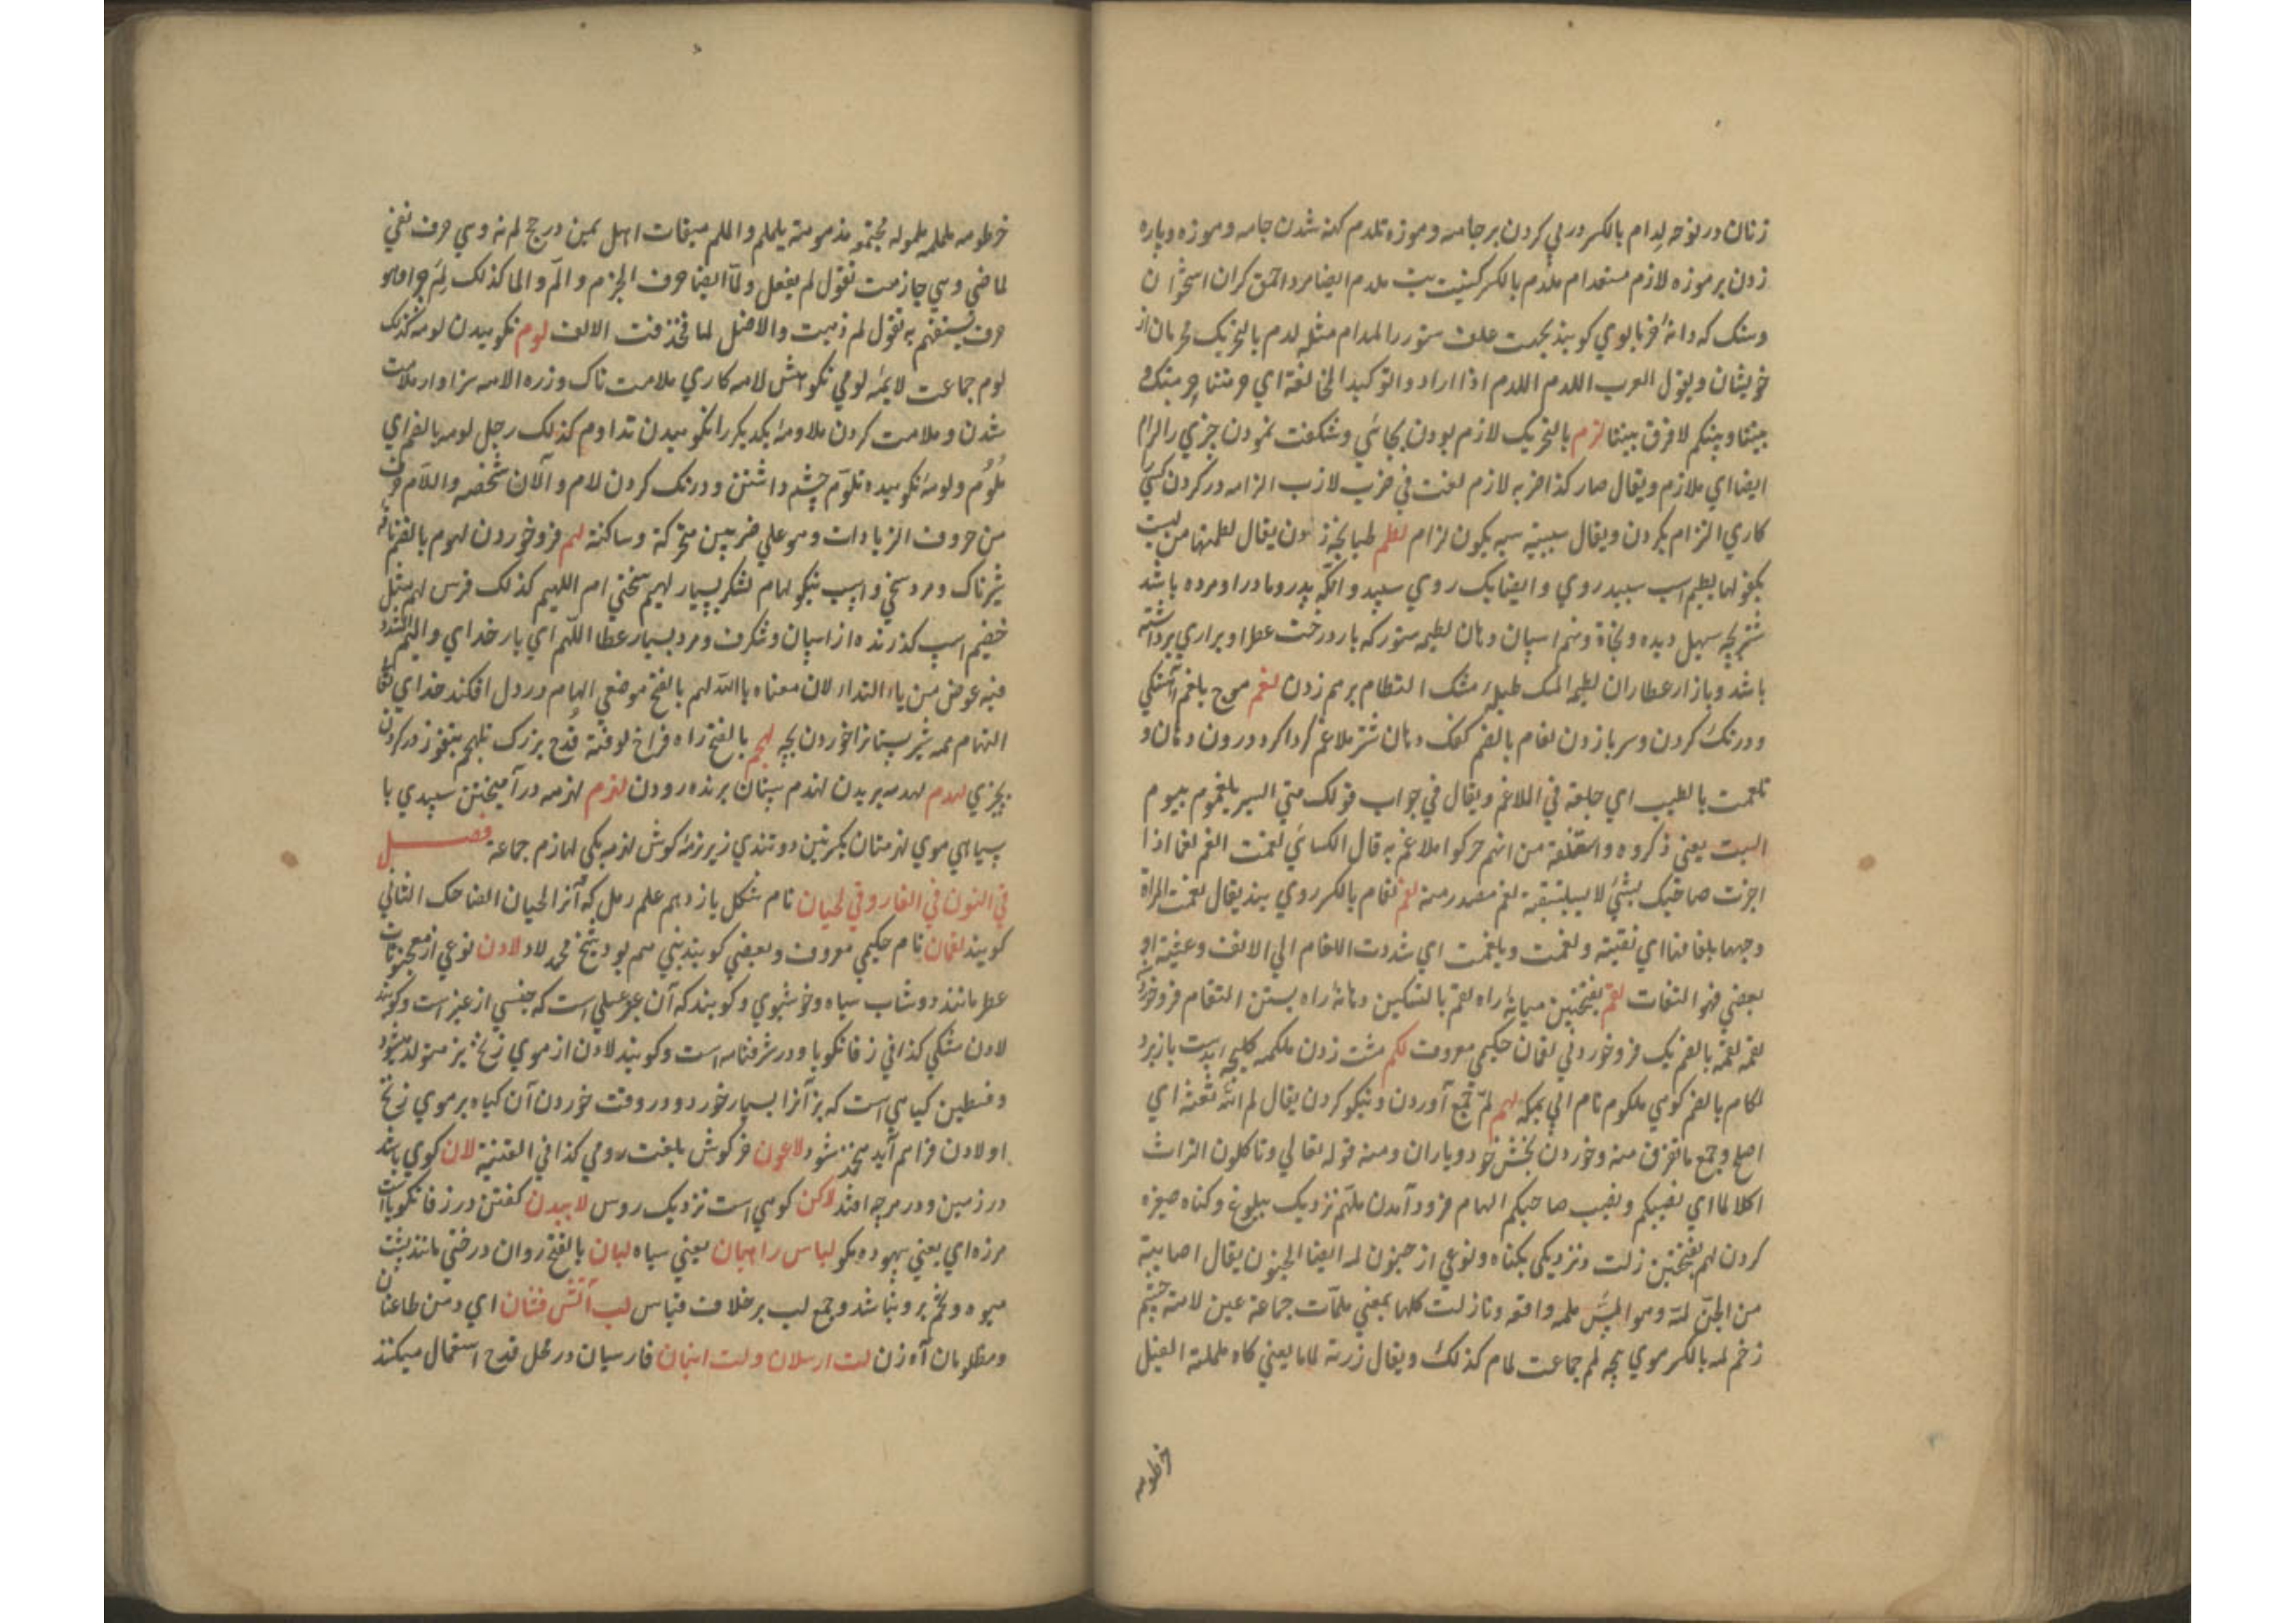 زنان در نوحه لدام بالکسر درپی کردن بر جامه و موزه تلدم کهنه شدن جامه و موزه و پاره
زدن بر موزه لازم ملدم بالکسر کنیت تب ملدم ایضا مرد احمق کران استخوان
و سنک که دانهٔ خرما بوی کوبند بجهت علف ستور را لمدام مثله لدم بالتحریک محرمان از
خویشان و یقول العرب اللدم اللدم اذا ارادوا التوکید المخالفة ای حرمتنا حرمتکم و
بیتنا و بیتکم لا فرق بیننا لزم بالتحریک لازم بودن بجائی و شکفت نمودن چیزی را لزام
ایضا ای ملازم و یقال صار کذا ضربه لازم لغت فی ضرب لازب الزامه در کردن کسی
کاری التزام بکردن و یقال سبیته سبه یکون لزام لطم طپانچه زدن یقال لطمتها من لیست
بکفو لها لطیم اسب سپید روی و ایضا یک روی سپید و آنکه پدر و مادر او مرده باشد
شتر بچه سهیل دیده و نهم اسپان دهان لطیمه ستور که بار درخت عطر او براری برداشته
باشد و بازار عطاران لطیم المسک طبلهٔ مشک التطام برهم زدن لغم موج بلغم آهستکی
و درنک کردن و سر باز زدن لغام بالضم کفک دهان شتر ملاغم کرداکرد درون دهان و
تلغمت بالطیب ای جعلته فی الملاغم و یقال فی جواب قولک متی السیر یلغموم بیوم
السبت یعنی ذکروه و اشتقاقه من انهم حرکوا ملاغمهم به قال الکسائی لغمت الغم لغما اذا
اخبرت صاحبک بشئ لا یستیقنه لغم مصدر منه لغم لغام بالکسر روی بند یقال لغمت المراة
وجهها بلغامها ای نقبته و لغمت و یلغمت ای شددت اللغام الی الانف و عینیه او
بعضی فهو النقاب لقم بفتحتین میانهٔ راه لقم بالتسکین دهانهٔ راه بستن التقام فرو خوردن
لقمه لقمة بالضم یک فرو خوردنی لقمان حکیمی معروف لکم مشت زدن ملکمه کلیچه بدست باز برد
لکام بالضم کوهی ملکوم نام ابی بمکه لمم لمّ جمع آوردن و نیکو کردن یقال لم الله شعثه ای
اصلح و جمع ما تفرق منه و خوردن بخش خود و یاران و منه قوله تعالی و تاکلون التراث
اکلا لما ای نصیبکم و نصیب صاحبکم المام فرود آمدن ملمّ نزدیک ببلوغ و کناه صغیره
کردن لمم بفتحتین زلت و نزدیکی بکناه و نوعی از جنون لمه ایضا الجنون یقال اصابته
من الجنّ لمّة و هو المسّ ملمه واقعه و نازلت کلها بمعنی ملمّات جماعة عین لامّة چشم
زخم لمه بالکسر موی بچه لمم جماعت لمام کذلک و یقال زرته لماما یعنی کاه ململة الفیل
خرطومه
خرطومه ململمه ململوله مجتمع مذمومته یلملم و الملم میقات اهل یمن در حج لم نه و هی حرف نفی
لماضی و هی جازمت تقول لم یفعل و لمّا ایضا حرف الجزم و الم و الما کذلک لِمَ چرا و هو
حرف یستفهم به تقول لم ذهبت و الاصل لما فحذفت الالف لوم نکوهیدن لومه کذلک
لوم جماعت لایمه لومی نکوهش لامه کاری ملامت ناک و زره الامه سزاوار ملامت
شدن و ملامت کردن ملاومه یکدیکر را نکوهیدن تداوم کذلک رجل لومه بالضم ای
مُلُوُم و لومه نکوهیده تلوّم چشم داشتن و درنک کردن لام و آلان شخصه و اللام حرف
من حروف الزیادات و هو علی ضربین متحرکة و ساکنة لهم فرو خوردن لهوم بالضم ناقه
شیرناک و مرد سخی و اسب نیکو لهام لشکر بسیار لهیم سختی ام اللهیم کذلک فرس لهم مثل
خضم اسپ کذرنده از اسپان و شکرف و مرد بسیار عطا اللهم ای بار خدای و المیم المشدد
فیه عوض من یاء النداء لان معناه یا الله لهم بالفتح موضعی الهام در دل افکند خدای تعالی
التهام همه شیر پستان را خوردن بچه لهجم بالفتح راه فراخ لوفته قُدح بزرک تلهجم بتفوز در کردن
بچیزی لهدم لهدمه بریدن لهذم سنان برنده رودن لهزم لهزمه در آمیختن سپیدی با
سیاهی موی لهزمتان بکسرتین دو تندی زیر نرمهٔ کوش لهزمه یکی لهازم جماعة فصل
فی النون فی الفارسی لحیان نام شکل یازدهم علم رمل که آنرا لحیان الضاحک الثانی
کویند لقمان نام حکیمی معروف و بعضی کویند نبی هم بود شیخ محمد لاد لادن نوعی از معجونات
عطر مانند دوشاب سیاه و خوشبوی و کویند که آن عنبر عسلی است که جنسی از عنبر است و کویند
لادن مشکی کذا فی زفانکویا و در شرفنامه است و کویند لادن از موی زنخ بز متولد میشود
و فسطین کیاهی است که بز آنرا بسیار خورد و در وقت خوردن آن کیاه بر موی زنخ
او لادن فراهم آید منجمد شود لاغون خرکوش بلغت رومی کذا فی القنیة لان کوی باشد
در زمین و در هرچه افتد لاکن کوهی است نزدیک روس لاییدن کفتن در زفانکویا است
هرزه ای یعنی بیهوده مکو لباس راهبان یعنی سیاه لبان بالفتح روان درختی مانند پشت
میوه و تخم برو نباشد و جمع لب بر خلاف قیاس لب آتش فشان ای دهن طاعنان
و مظلومان آه زن لت ارسلان و لت انبان فارسیان در محل قدح استعمال میکنند